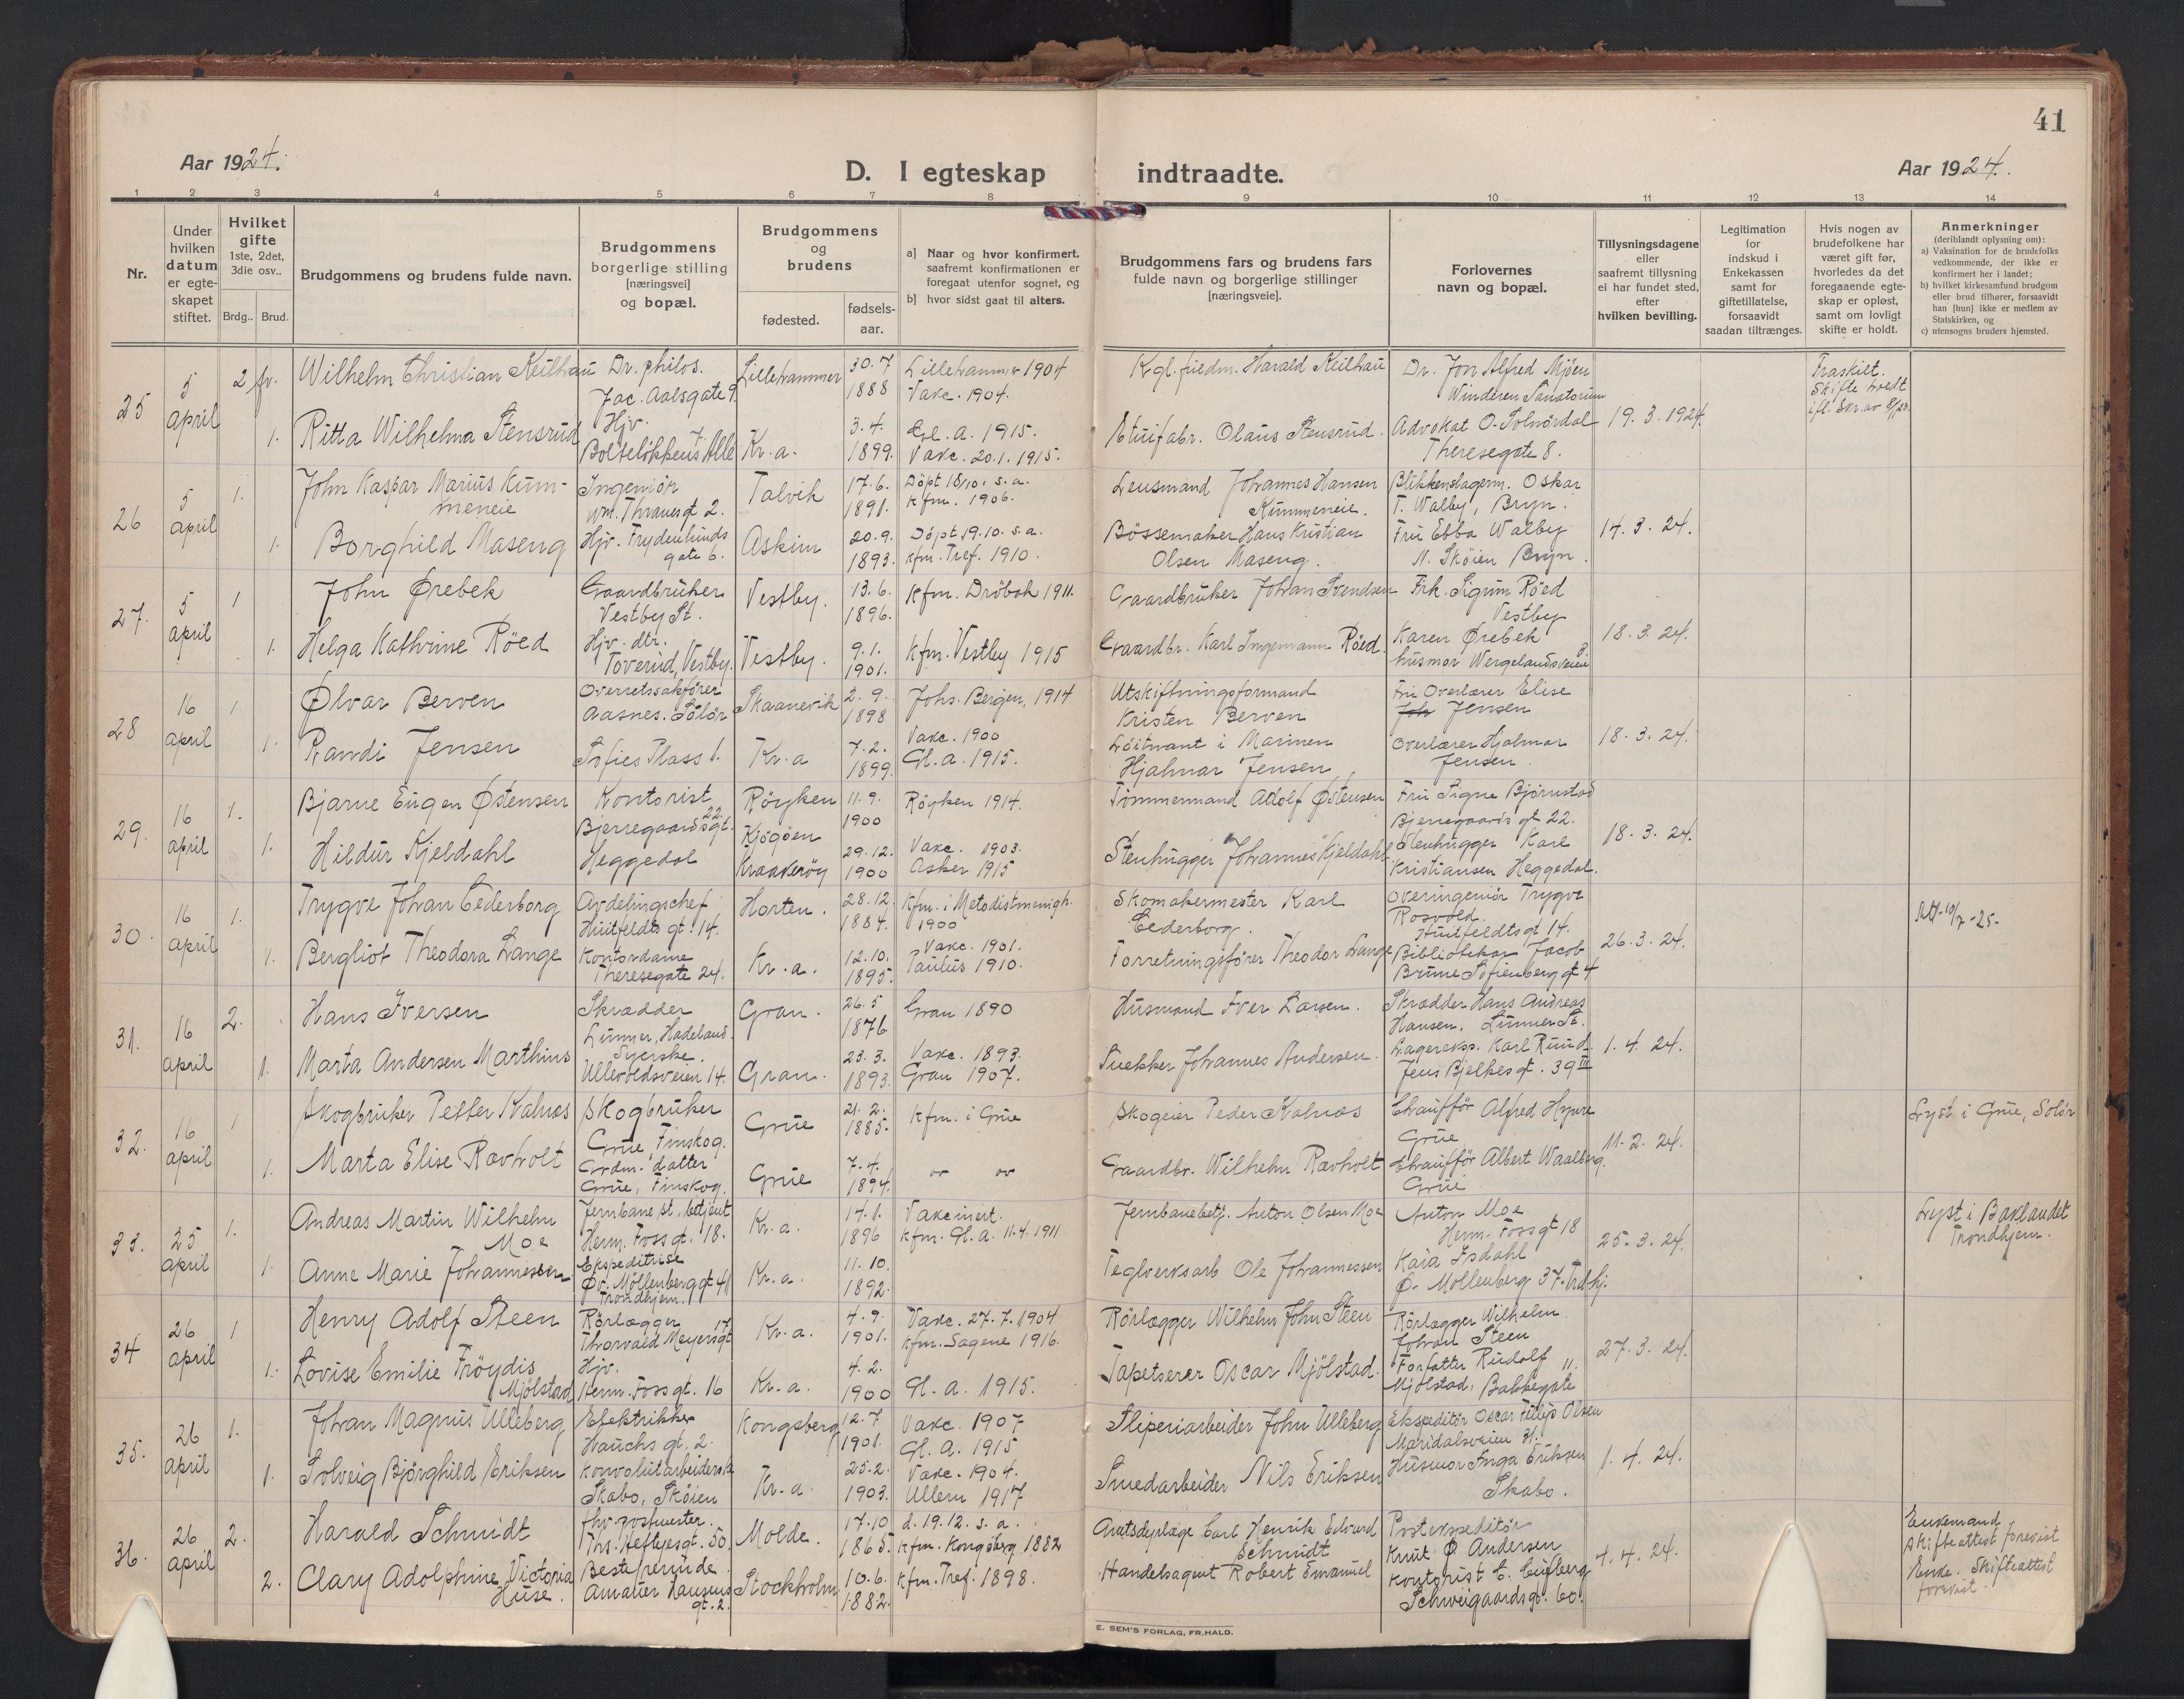 41
Aar 1924.
D. I egteskap indtraadte.
Aar 1924.
1 2 3 4 5 6 7 8 9 10 11 12 13 14
Nr.
Under hvilken datum er egteskapet stiftet.
Hvilket gifte 1ste, 2det, 3die osv..
Brdg.. Brud.
Brudgommens og brudens fulde navn.
Brudgommens borgerlige stilling [næringsvei] og bopæl.
Brudgommens og brudens
fødested. fødsels-aar.
a] Naar og hvor konfirmert, saafremt konfirmationen er foregaat utenfor sognet, og
b] hvor sidst gaat til alters.
Brudgommens fars og brudens fars fulde navn og borgerlige stillinger [næringsveie].
Forlovernes navn og bopæl.
Tillysningsdagene eller saafremt tillysning ei har fundet sted, efter hvilken bevilling.
Legitimation for indskud i Enkekassen samt for giftetillatelse, forsaavidt saadan tiltrænges.
Hvis nogen av brudefolkene har været gift før, hvorledes da det foregaaende egteskap er opløst, samt om lovligt skifte er holdt.
Anmerkninger (deriblandt oplysning om):
a) Vaksination for de brudefolks vedkommende, der ikke er konfirmert her i landet;
b) hvilket kirkesamfund brudgom eller brud tilhører, forsaavidt han [hun] ikke er medlem av Statskirken, og
c) utensogns bruders hjemsted.
25 5 april 2 fr. Wilhelm Christian Keilhau Dr. philos. Jac. Aalsgate 9. Lillehammer 30.7 1888 Lillehammer 1904 Vakc. 1904. Kgl. fuldm. Harald Keilhau Dr. Jon Alfred Mjøen Vinderen Sanatorium
Fraskilt. Skifte holdt
1. Ritta Wilhelma Stensrud Hjv. Bolteløkkens Alle 7. Kr.a. 3.4. 1899. Gl. a. 1915. Vakc. 20.1.1915. Etuifabr. Olaus Stensrud. Advokat O. Solnørdal Theresegate 8. 19.3.1924.
26 5 april 1. John Kaspar Marius Kummeneie Ingeniør Wm. Thranesgt 2. Talvik 17.6. 1891. Døpt 18/10. s.a. kfm. 1906. Lensmand Johannes Hansen Kummeneie. Blikkenslagerm. Oskar T. Walby, Bryn.
1. Borghild Maseng Hjv. Frydenlunds gate 6. Askim 20.9. 1893. Døpt 19.10. s.a. kfm. Tref. 1910. Bøssemaker Hans Kristian Olsen Maseng. Fru Ebba Walby N. Skøien Bryn. 14.3.24.
27. 5 april 1 John Ørebek Gaardbruker Vestby St. Vestby. 13.6. 1896. Kfm. Drøbak 1911. Gaardbruker Johan Svendsen Frk. Sigrun Røed Vestby
1. Helga Kathrine Røed Hjv. dtr. Toverud, Vestby. Vestby. 9.1. 1901. Kfm. Vestby 1915 Gaardbr. Karl Ingemann Røed. Karen Ørebek husmor Wergelandsveien 18.3.24.
28 16 april 1 Ølvar Berven Overretssakfører Aasnes. Solør Skaanevik 2.9. 1898 Johs. Bergen, 1914 Utskiftningsformand Kristen Berven Fru Overlærer Elise Jensen
1. Randi Jensen Sofies Plass 1. Kr.a 7.2. 1899. Vakc. 1900 Gl. a. 1915. Løitnant i Marinen Hjalmar Jensen Overlærer Hjalmar Jensen. 18.3.24.
29. 16 april 1. Bjarne Eugen Østensen Kontorist Bjerregaardsgt. 22. Røyken 11.9. 1900 Røyken 1914. Tømmermand Adolf Østensen Fru Signe Bjørnstad Bjerregaards gt 22.
1. Hildur Kjeldahl Heggedal Kjøgøen Kraakerøy 29.12. 1900 Vakc. 1903. Asker 1915 Stenhugger Johannes Kjeldahl. Stenhugger Karl Kristiansen Heggedal. 18.3.24.
30. 16 april 1. Trygve Johan Cederborg Avdelingschef Huitfeldts gt. 14. Horten. 28.12 1884. kfm. i Metodistmenigh. 1900 Skomakermester Karl Cederborg. Overingeniør Trygve Rosvold. Huitfeldtsgt 14.
1. Bergliot Theodora Lange Kontordame Theresegate 24. Kr.a. 12.10. 1895. Vakc. 1901. Paulus 1910. Forretningsfører Theodor Lange Bibliotekar Jacob Brune Sofienberggt 4 26.3.24.
31. 16 april 2. Hans Iversen Skrædder Lunner, Hadeland. Gran. 26.5 1876 Gran 1890 Husmand Iver Larsen. Skrædder Hans Andreas Hansen. Lunner St.
1. Marta Andersen Marthins Syerske. Ullevoldsveien 14. Gran. 23.3. 1893. Vakc. 1893. Gran 1907. Snekker Johannes Andersen. Lagereksp. Karl Ruud. Jens Bjelkesgt. 39 III 1.4.24.
32. 16 april 1 Skogbruker Petter Kalnæs Skogbruker Grue, Finskog. Grue 21.2. 1885. kfm. i Grue Skogeier Peder Kalnæs Chauffør Alfred Hynne Grue
Lyst i Grue, Solør
1. Marta Elise Ravholt Grdm. datter Grue, Finskog. Grue 7.4. 1894. Gaardbr. Wilhelm Ravholt Chauffør Albert Waalberg. Grue 11.2.24.
33. 25 april 1. Andreas Martin Wilhelm Moe Jernbane st. betjent Herm. Fossgt. 18. Kr.a. 14.1. 1896 Vakcinert. kfm. Gl.a. 11.4.1911 Jernbanebetj. Anton Olsen Moe Anton Moe Herm. Fossgt 18
Lyst i Baklandet Trondhjem.
1. Anne Marie Johannessen Ekspeditrise Øv. Møllenberggt 41 Trondhjem. Kr.a. 11.10. 1892. Teglverksarb Ole Johannessen Kaia Isdahl Ø. Møllenberg 37. Trdhj. 25.3.24.
34 26 april 1 Henry Adolf Steen Rørlægger Thorvald Meyersgt 17. Kr.a. 4.9. 1901. Vakc. 27.7.1904 kfm. Sagene 1916. Rørlægger Wilhelm John Steen Rørlægger Wilhelm Johan Steen
1. Lovise Emilie Frøydis Mjølstad Hjv. Herm. Fossgt. 16 Kr.a. 4.2. 1900 Gl. a. 1915. Tapetserer Oscar Mjølstad. Forfatter Rudolf Mjølstad, Bakkegate 11. 27.3.24.
35. 26 april 1. Johan Magnus Ulleberg Elektriker Hauchs gt. 2. Kongsberg 12.7 1901. Vakc. 1907 Gl. A. 1915 Sliperiarbeider John Ulleberg Ekspeditør Oscar Fillip Olsen Maridalsveien 31.
1. Solveig Bjørghild Eriksen Konvolutarbeiderske Skabo, Skøien Kr.a. 25.2. 1903. Vakc. 1904. Ullern 1917 Smedarbeider Nils Eriksen Husmor Inga Eriksen Skabo. 1.4.24.
36. 26 april 2. Harald Schmidt fhv. postmester. Ths. Heftyesgt. 50. Molde. 17.10 1865. d. 19.12. s.a. kfm. Kongsberg 1882 Amtsdyrlæge Carl Henrik Edvard Schmidt Postekspeditør Knut Ø Andersen
Enkemand Skifteattest forevist
2. Clary Adolphine Victoria Huse. Bestyrerinde. Amaliér Hansens gt. 2. Stockholm 10.6. 1882. kfm. Tref. 1898. Handelsagent Robert Emanuel Kontorist Schweigaardsgt. 60. 4.4.24.
Enke. Skifteattest forevist.
E. SEM'S FORLAG, FR.HALD.